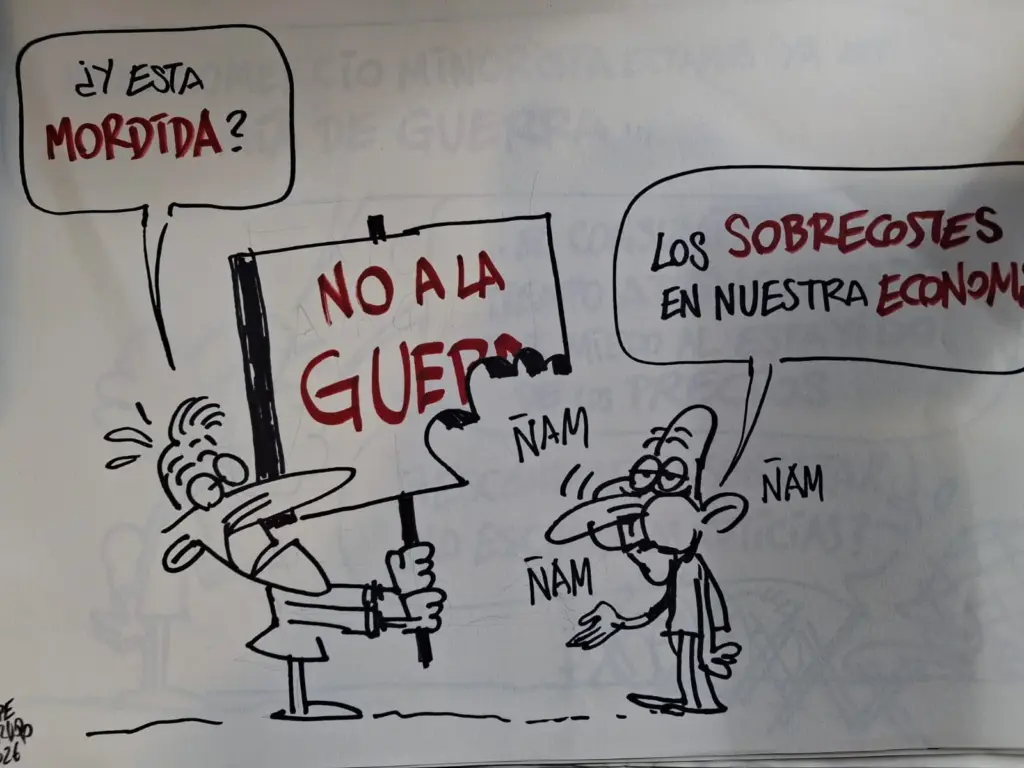 ¿Y ESTA
MORDIDA?
NO A LA
GUER
LOS SOBRECOSTES
EN NUESTRA ECONOMÍ
ÑAM
ÑAM
ÑAM